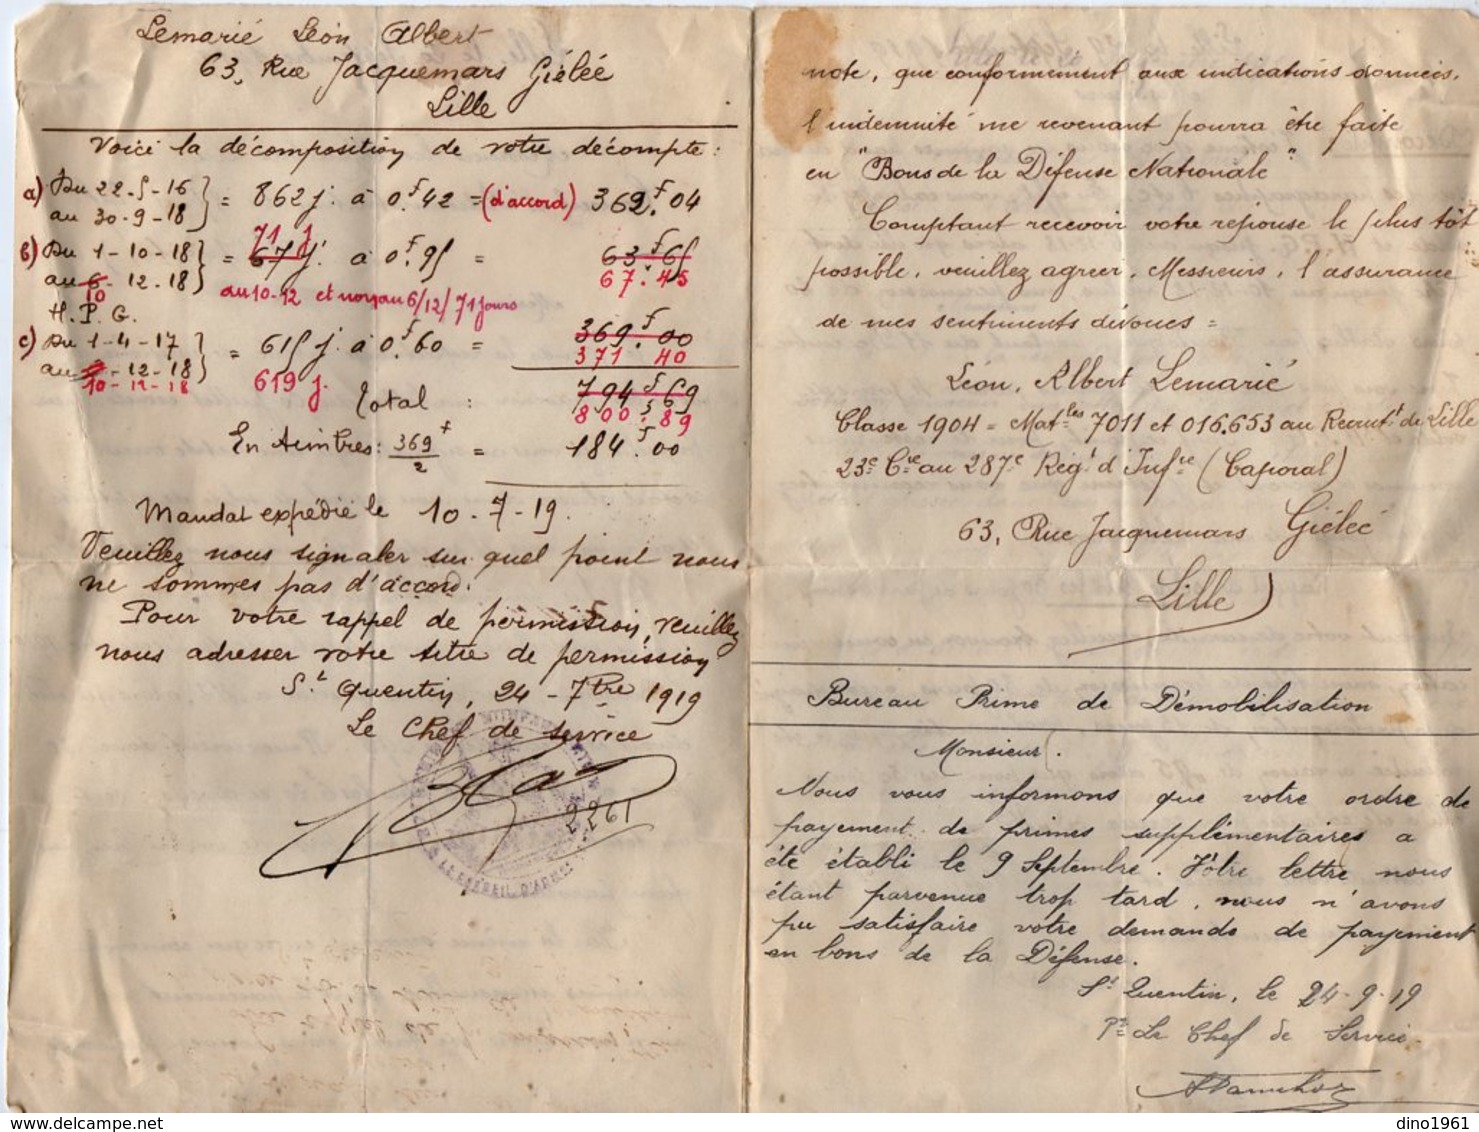 Lemarié Léon Albert
63, Rue Jacquemars Giélée
Lille
Voici la décomposition de votre décompte :
a) Du 22-5-16
au 30-9-18 } = 862 j. à 0f.42 = (d'accord) 369f.04
71 j
b) Du 1-10-18 } = 67 j. à 0f.95 = 63f.65
au 6-12-18 67.45
10 au 10-12 et non au 6/12/71 jours
H. P. G.
c) Du 1-4-17 } = 615 j. à 0f.60 = 369f.00
au -12-18 371.40
10-12-18 619 j.
Total : 794f.69
800.89
En timbres : 369f/2 = 184f.00
Mandat expédié le 10-7-19.
Veuillez nous signaler sur quel point nous
ne sommes pas d'accord.
Pour votre rappel de permission, veuillez
nous adresser votre titre de permission
St Quentin, 24-7bre 1919
Le Chef de service
2261
note, que conformément aux indications données,
l'indemnité me revenant pourra être faite
en "Bons de la Défense Nationale"
Comptant recevoir votre réponse le plus tôt
possible, veuillez agréer, Messieurs, l'assurance
de mes sentiments dévoués =
Léon, Albert Lemarié
Classe 1904 = Matles 7011 et 016.653 au Recrutt de Lille
23e Cie au 287e Régt d'Infie (Caporal)
63, Rue Jacquemars Giélée
Lille
Bureau Prime de Démobilisation
Monsieur.
Nous vous informons que votre ordre de
payement de primes supplémentaires a
été établi le 9 Septembre. Vôtre lettre nous
étant parvenue trop tard, nous n'avons
pu satisfaire votre demande de payement
en bons de la Défense.
St Quentin, le 24-9-19
Pr Le Chef de Service
dino1961